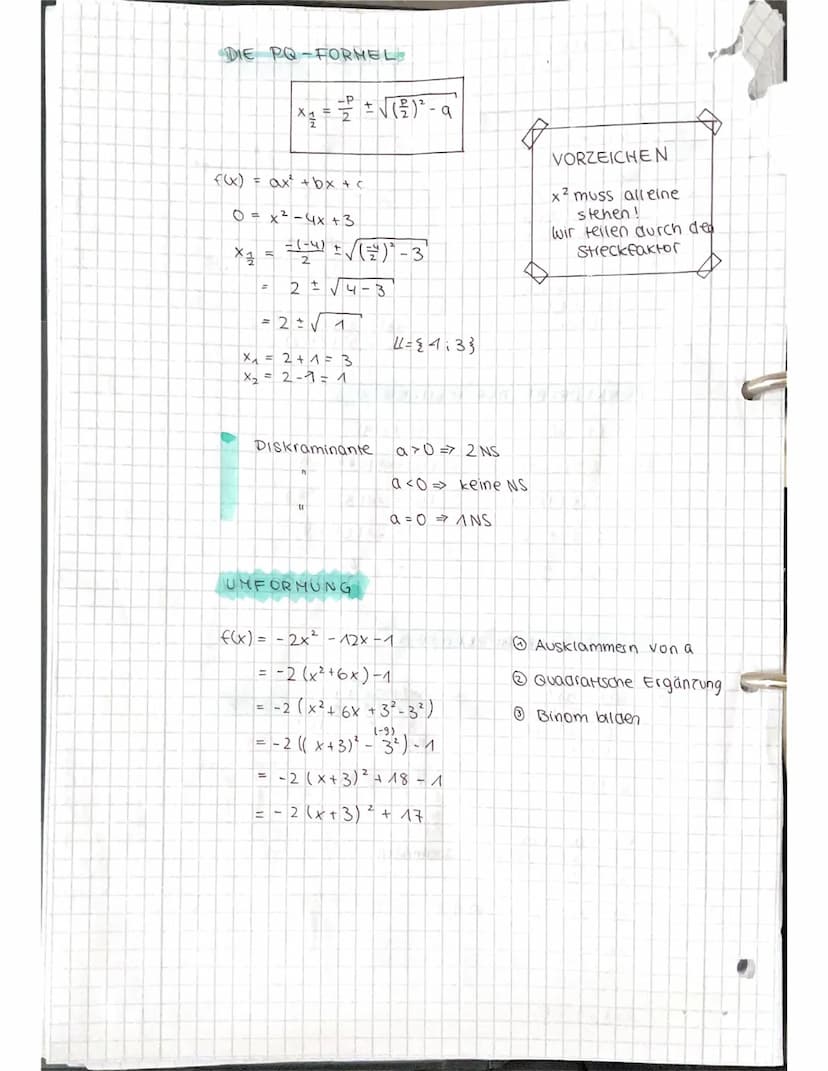 DIE PQ-FORMEL
x½ = -p/2 ± √((p/2)² - q
VORZEICHEN
x² muss alleine
stehen!
Wir teilen durch den
Streckfaktor
f(x) = ax² + bx + c
0 = x² - 4x + 3
x½ = -(-4)/2 ± √((-4/2)² - 3
= 2 ± √4-3
= 2 ± √1
𝕃 = {1;3}
x₁ = 2 + 1 = 3
x₂ = 2 - 1 = 1
Diskraminante a > 0 => 2 NS
" a < 0 => keine NS
" a = 0 => 1 NS
UMFORMUNG
f(x) = -2x² - 12x - 1
= -2 (x² + 6x) - 1
= -2 (x² + 6x + 3² - 3²)
(-9)
= -2 ((x+3)² - 3²) - 1
= -2 (x+3)² + 18 - 1
= -2 (x+3)² + 17
① Ausklammern von a
② Quadratische Ergänzung
③ Binom bilden